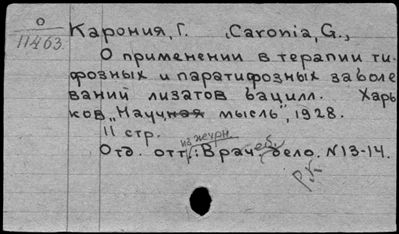 О
11463
Карония, Г. Caronia, G.,
О применении в терапии ти-
фозных и паратифозных заболе
ваний лизатов бацилл. Харь
ков, „Научная мысль", 1928.
11 стр.
Отд. отт. из журн.: Врачеб. дело. N13-14.